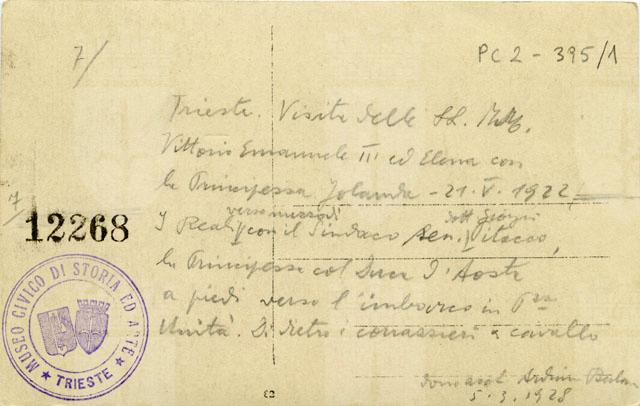 7/
PC 2 - 395/1
Trieste. Visita delle LL. MM.
Vittorio Emanuele III ed Elena con
la Principessa Jolanda - 21. V. 1922
verso mezzodì dott. Giorgio
I Reali con il Sindaco sen. Pitacco,
la Principessa col Duca d'Aosta
a piedi verso l'imbarco in P.za
Unità. Di dietro i corrassieri a cavallo
7/
12268
MUSEO CIVICO DI STORIA ED ARTE
★ TRIESTE ★
5.3.1928
82